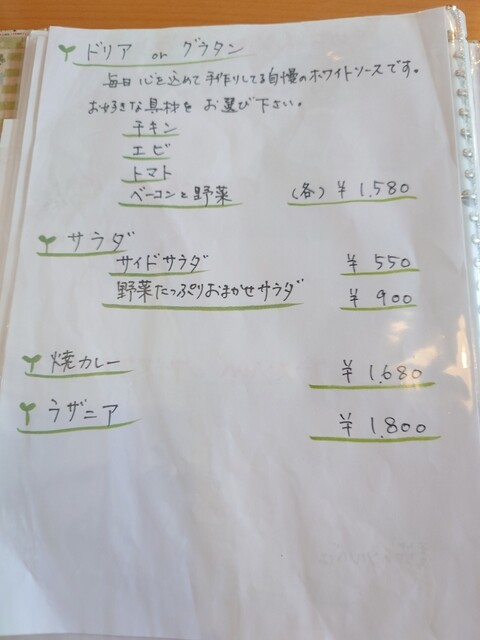 ドリア or グラタン
毎日 心を込めて 手作りしてる自慢のホワイトソースです。
お好きな具材を お選び下さい。
チキン
エビ
トマト
ベーコンと野菜 (各) ¥1,580
サラダ
サイドサラダ ¥550
野菜たっぷりおまかせサラダ ¥900
焼カレー ¥1,680
ラザニア ¥1,800